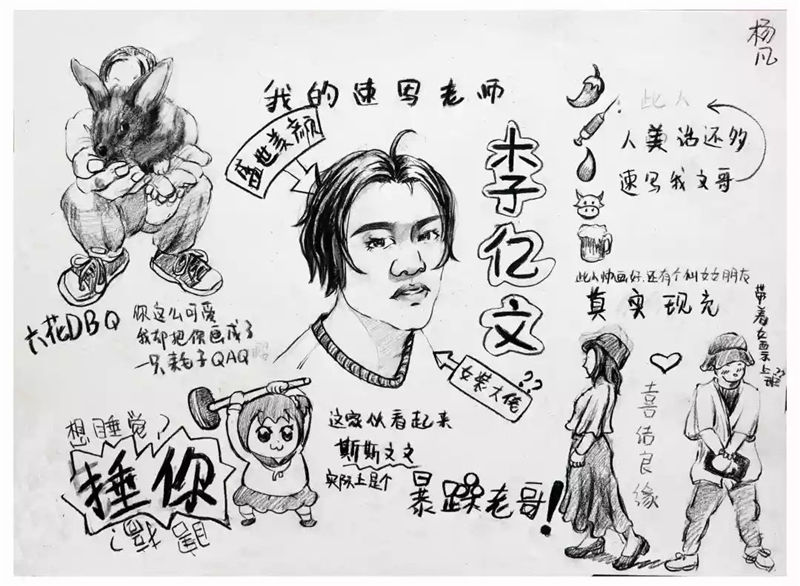 杨凡
我的速写老师
盛世美颜
李亿文
此人
人美话还多
速写我文哥
此人帅画好.还有个女朋友
真实现充
带着女票上班??
六花DBQ
你这么可爱
我却把你画成了
一只耗子QAQ
女装大佬??
想睡觉?
捶你
这家伙看起来
斯斯文文
实际上是个
暴躁老哥!
喜结良缘